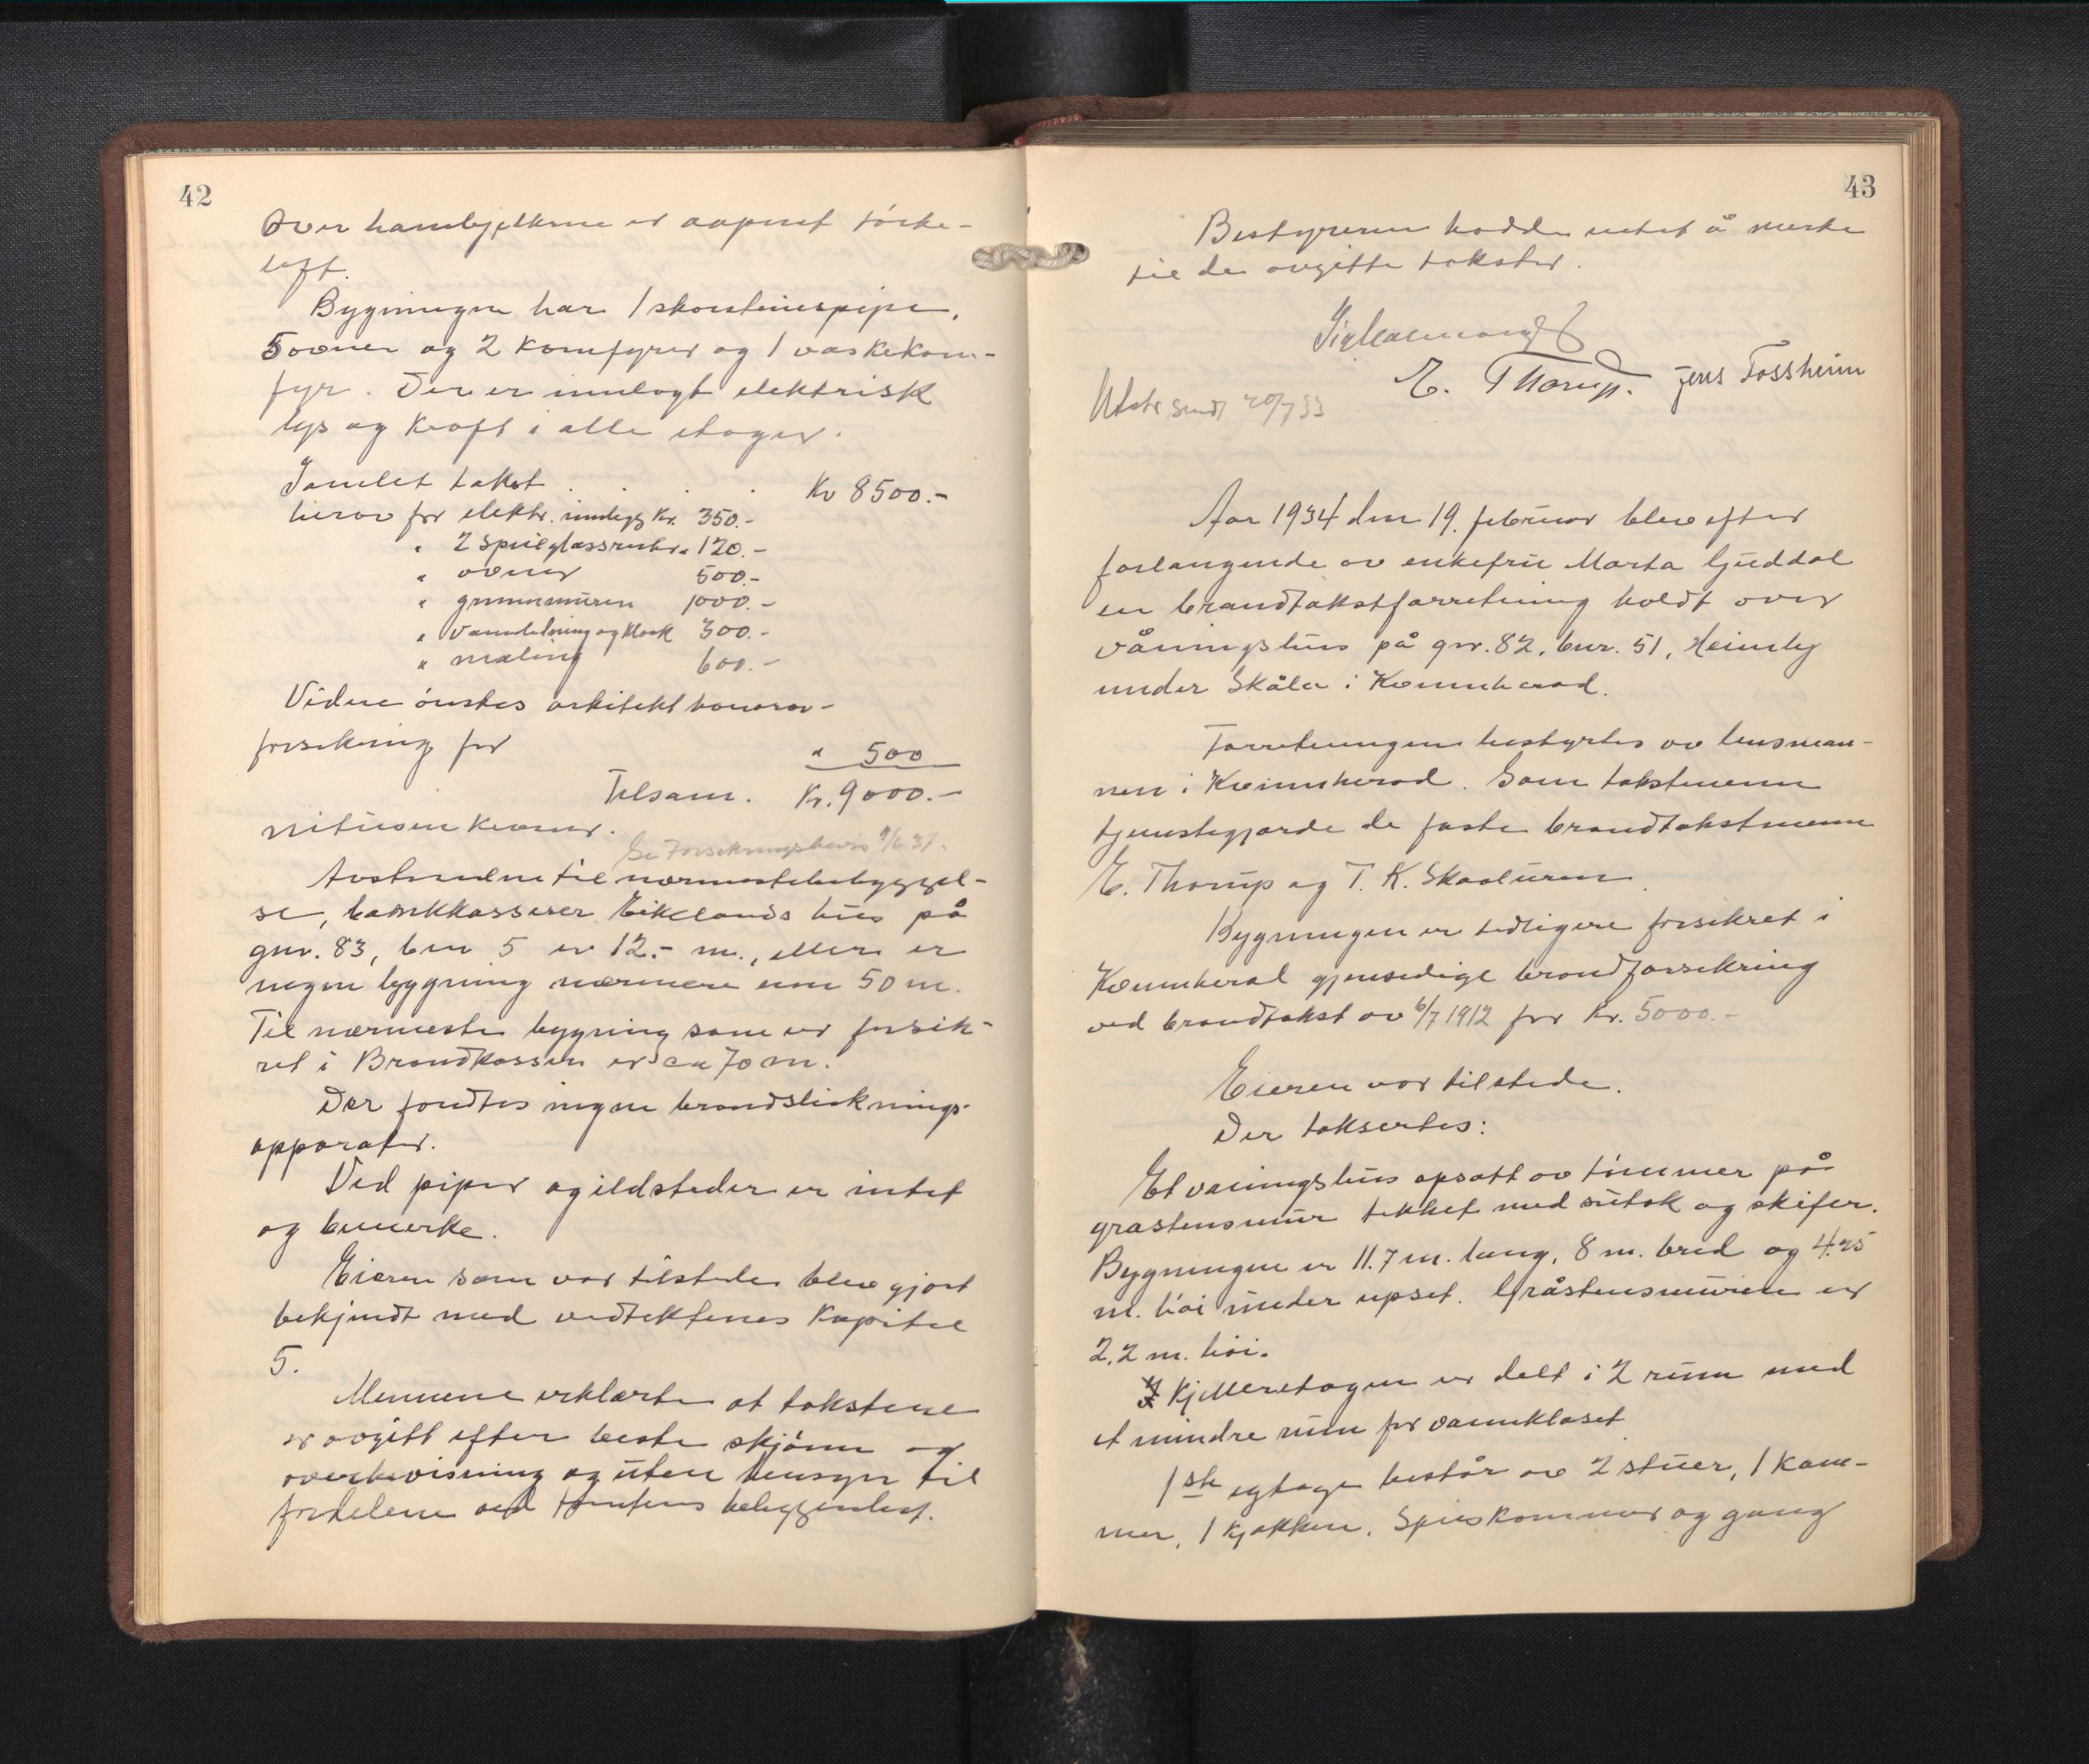 42
Over hanebjelkene er aapent tørke-
loft.
Bygningen har 1 skorsteinspipe,
5 ovner og 2 komfyrer og 1 vaskekom-
fyr. Der er innlagt elektrisk
lys og kraft i alle etager.
Samlet takst . . . . Kr 8500.-
herav for elektr. innlegg Kr. 350.-
" 2 speilglassruter " 120.-
" ovner 500.-
" grunnmuren 1000.-
" vannledning og klosk 300.-
" maling 600.-
Videre ønskes arkitekthonorar-
forsikring for " 500
Tilsam. Kr. 9000.-
nitusen kroner.
Se Forsikringsbevis 9/6 37.
Avstandene til nærmeste bebyggel-
se, bankkasserer Eiklands hus på
gnr. 83, bnr 5 er 12.- m., ellers er
ingen bygning nærmere enn 50 m.
Til nærmeste bygning som er forsik-
ret i Brandkassen er ca 70 m.
Der fandtes ingen brandsluknings-
apparater.
Ved piper og ildsteder er intet
og bemerke.
Eieren som var tilstede blev gjort
bekjendt med vedtektenes kapitel
5.
Mennene erklærte at takstene
er avgitt efter beste skjønn og
overbevisning og uten hensyn til
fordelene ved tomtens beliggenhet.
43
Bestyreren hadde intet å merke
til de avgitte takster.
E. Thorup. Jens Fossheim
Utskr sendt 20/7 33
Aar 1934 den 19. februar blev efter
forlangende av enkefru Marta Guddal
en brandtakstforretning holdt over
våningshus på gnr. 82, bnr. 51, Heimly
under Skåla i Kvinnherad.
Forretningen bestyrtes av lensman-
nen i Kvinnherad. Som takstmenn
tjenestegjorde de faste brandtakstmenn
E. Thorup og T. K. Skaaluren.
Bygningen er tidligere forsikret i
Kvinnherad gjensidige brandforsikring
ved brandtakst av 6/7 1912 for Kr. 5000.-
Eieren var tilstede.
Der taksertes:
Et våningshus opsatt av tømmer på
gråstensmur tekket med sutak og skifer.
Bygningen er 11.7 m. lang, 8 m. bred og 4.25
m. høi under upset. Gråstensmuren er
2,2 m. høi.
Kjelleretagen er delt i 2 rum med
et mindre rum for vannklosett
1ste etage består av 2 stuer, 1 kam-
mer, 1 kjøkken, Speiskammer og gang